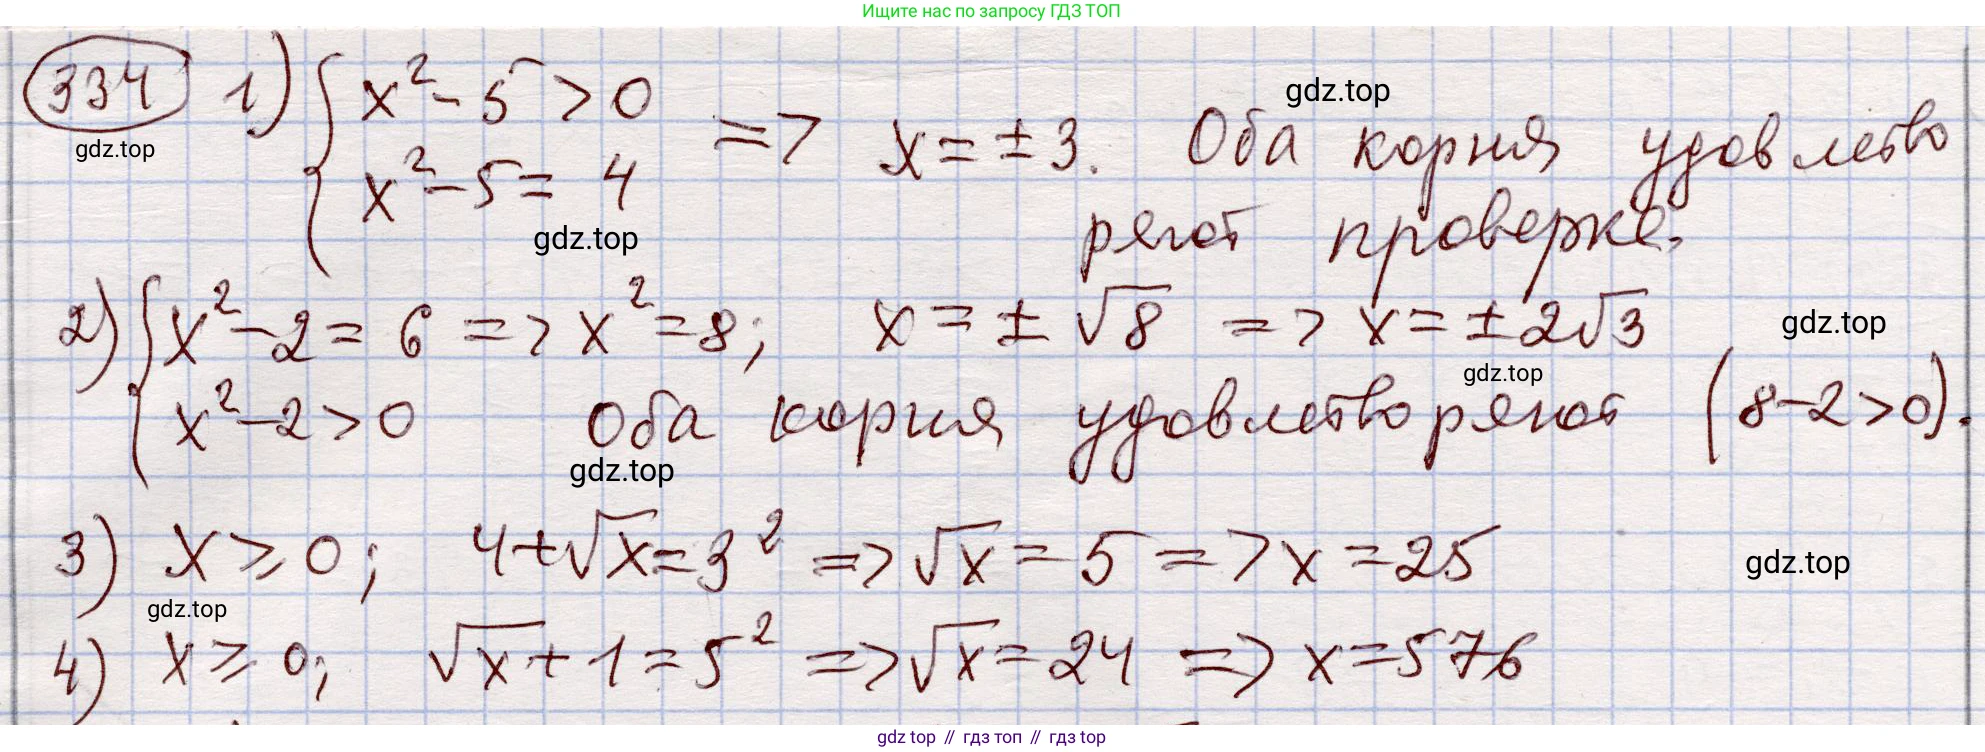 Ищите нас по запросу ГДЗ ТОП
334 1) { x² - 5 > 0
gdz.top
x² - 5 = 4 => x = ± 3. Оба корня удовлетво
gdz.top
ряют проверке.
gdz.top
2) { x² - 2 = 6 => x² = 8; x = ± √8 => x = ± 2√3
gdz.top
gdz.top
x² - 2 > 0 Оба корня удовлетворяют (8 - 2 > 0).
gdz.top
3) x ≥ 0; 4 + √x = 3² => √x = 5 => x = 25
gdz.top
gdz.top
4) x ≥ 0; √x + 1 = 5² => √x = 24 => x = 576
gdz.top // гдз топ // гдз top